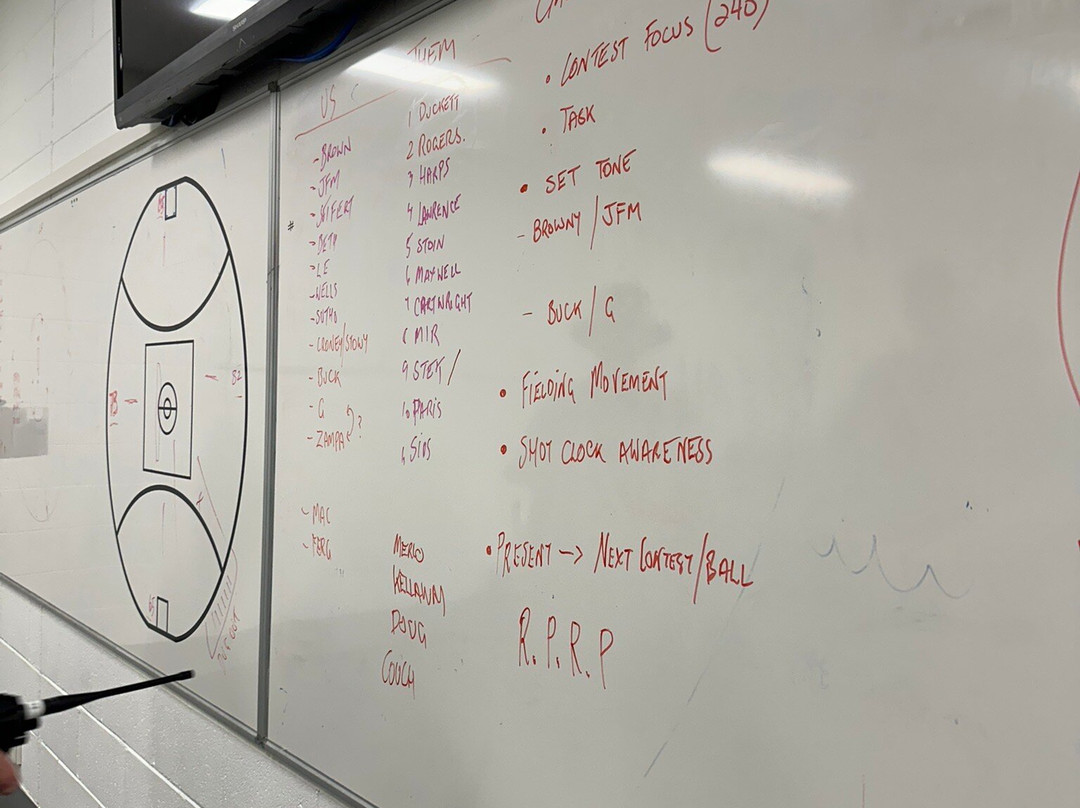 SHARP
US
- BROWN
- JFM
- SEIFERT
- BETH
- LE
- WELLS
- SUTHO
- CRONEY/STOWY
- BUCK
- G
- ZAMPA ?
- MAC
- FERG
THEM
1 DUCKETT
2 ROGERS.
3 HARPS
4 LAWRENCE
5 STOIN
6 MAXWELL
7 CARTWRIGHT
8 MIR
9 STEK /
10 PARIS
11 SIDS
MERLO
KELLAWAY
DOUG
COUCH
• CONTEST FOCUS (240)
• TASK
• SET TONE
- BROWNY / JFM
- BUCK / G
• FIELDING MOVEMENT
• SHOT CLOCK AWARENESS
• PRESENT -> NEXT CONTEST/BALL
R.P.R.P
#
DUGOUT